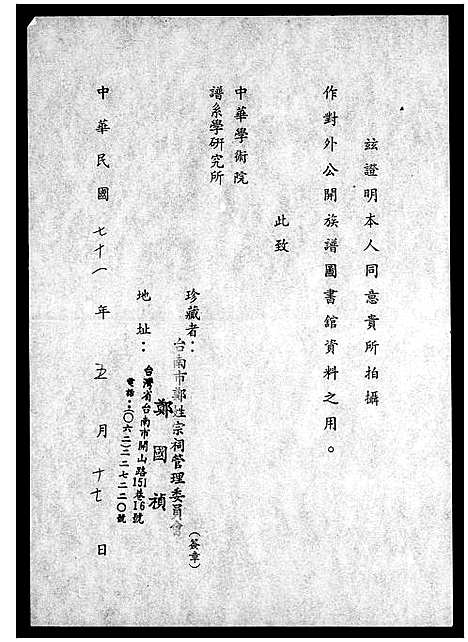 玆證明本人同意貴所拍攝
作對外公開族譜圖書館資料之用。
此致
中華學術院
譜系學研究所
珍藏者：台南市鄭姓宗祠管理委員會（簽章）
鄭國禎
地址：台灣省台南市開山路151巷16號
電話：(〇六二)二二七二二〇號
中華民國七十一年五月十七日